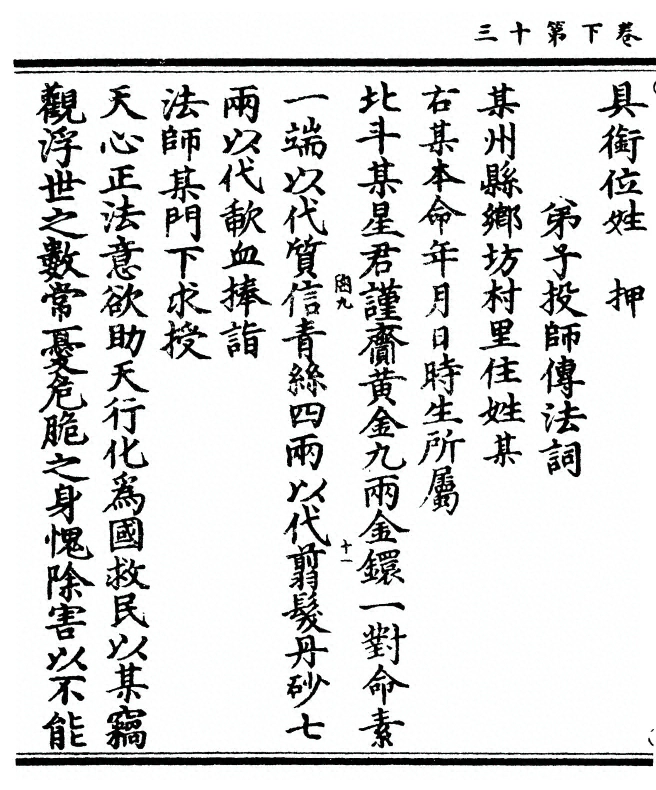 卷下第十三
具銜位姓　押
弟子投師傳法詞
某州縣鄉坊村里住姓某
右某本命年月日時生所屬
北斗某星君謹齎黃金九兩金鐶一對命素
一端以代質信青絲四兩以代翦髮丹砂七
兩以代歃血捧詣
法師某門下求授
天心正法意欲助天行化爲國救民以某竊
觀浮世之數常憂危脆之身愧除害以不能
十一